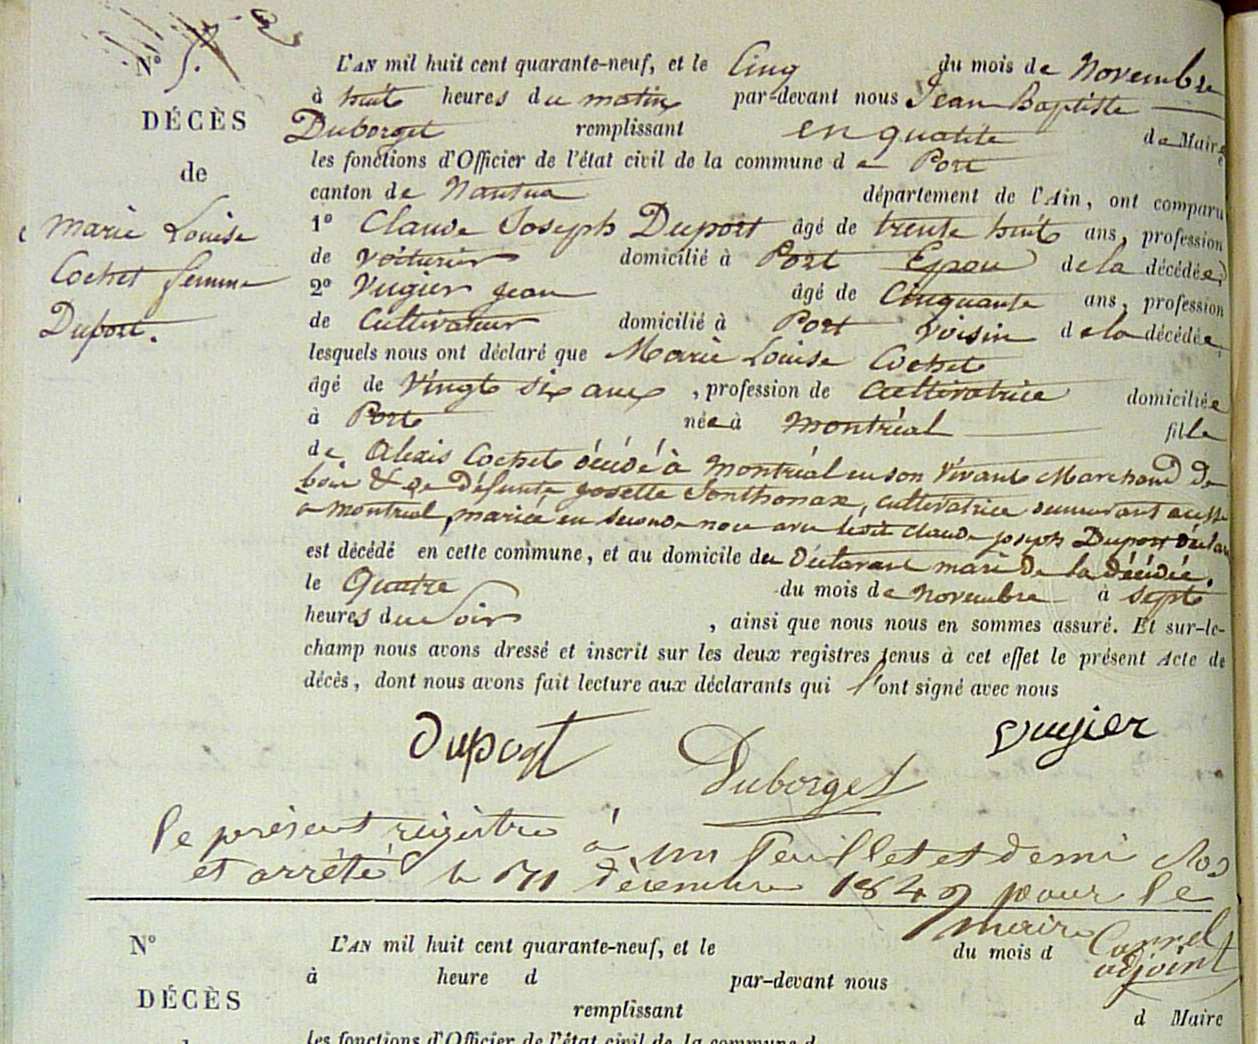 N° 5.
DÉCÈS
de
Marie Louise
Cochet femme
Duport.
L'AN mil huit cent quarante-neuf, et le Cinq du mois de Novembre
à huit heures du matin par-devant nous Jean Baptiste
Duborget remplissant en qualité de Maire
les fonctions d'Officier de l'état civil de la commune de Port
canton de Nantua département de l'Ain, ont comparu
1° Claude Joseph Duport âgé de trente huit ans, profession
de voiturier domicilié à Port Epoux de la décédée,
2° Vugier jean âgé de Cinquante ans, profession
de Cultivateur domicilié à Port voisin de la décédée,
lesquels nous ont déclaré que Marie Louise Cochet
âgé de Vingt six ans, profession de Cultivatrice domiciliée
à Port née à Montréal fille
de Alexis Cochet décédé à Montréal en son Vivant Marchand de
bois & de Défunte Josette Sonthonax, cultivatrice demeurant aussi
a Montréal, mariée en seconde noce avec ledit Claude joseph Duport déclarant
est décédé en cette commune, et au domicile du Déclarant mari de la décédée.
le Quatre du mois de Novembre à sept
heures du Soir, ainsi que nous nous en sommes assuré. Et sur-le-
champ nous avons dressé et inscrit sur les deux registres tenus à cet effet le présent Acte de
décès, dont nous avons fait lecture aux déclarants qui l'ont signé avec nous
Duport Duborget Vugier
le présent registre à un feuillet et demi clos
et arrêté le 31 Décembre 1849 pour le
maire
adjoint
N° L'AN mil huit cent quarante-neuf, et le du mois d
à heure d par-devant nous
DÉCÈS remplissant d Maire
les fonctions d'Officier de l'état civil de la commune d